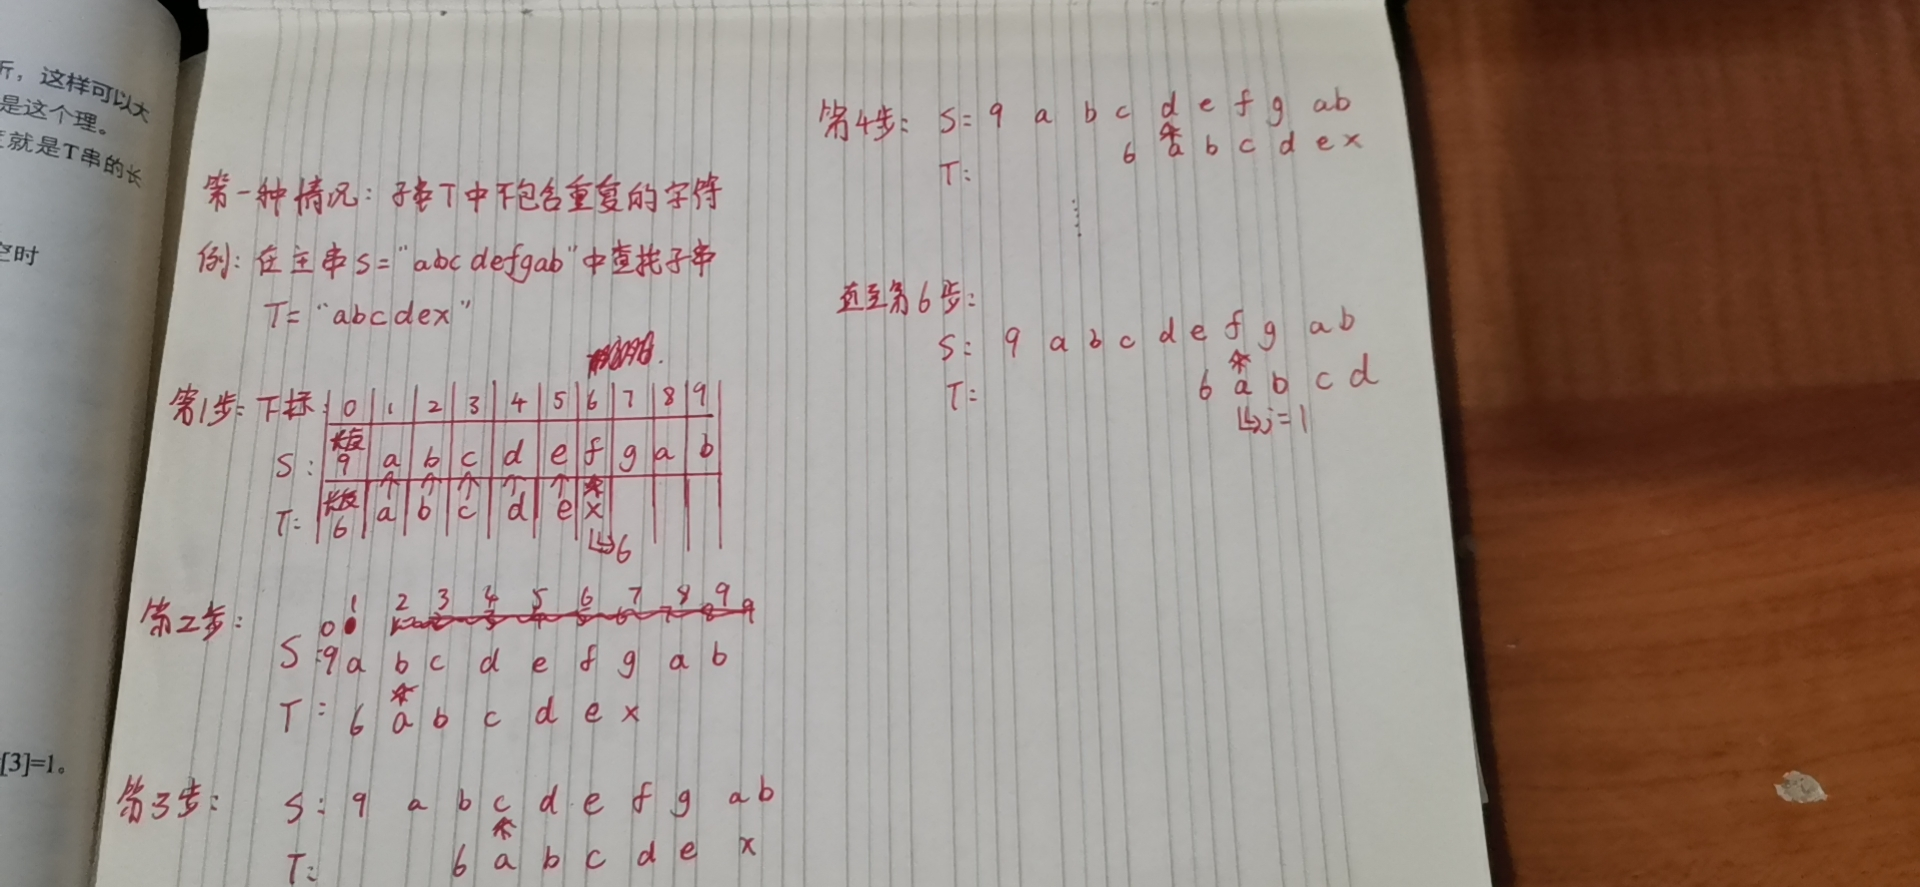 斤，这样可以大
是这个理。
就是T串的长
空时
[3]=1。
第一种情况：子串T中不包含重复的字符
例：在主串S="abcdefgab"中查找子串
T="abcdex"
第1步：下标：0 1 2 3 4 5 6 7 8 9
长度
S: 9 a b c d e f g a b
长度
T: 6 a b c d e x
↳6
第2步：
0 1 2 3 4 5 6 7 8 9
S: 9 a b c d e f g a b
T: 6 a b c d e x
第3步： S: 9 a b c d e f g a b
T: 6 a b c d e x
第4步： S= 9 a b c d e f g a b
T: 6 a b c d e x
⋮
直至第6步：
S: 9 a b c d e f g a b
T: 6 a b c d
↳j=1